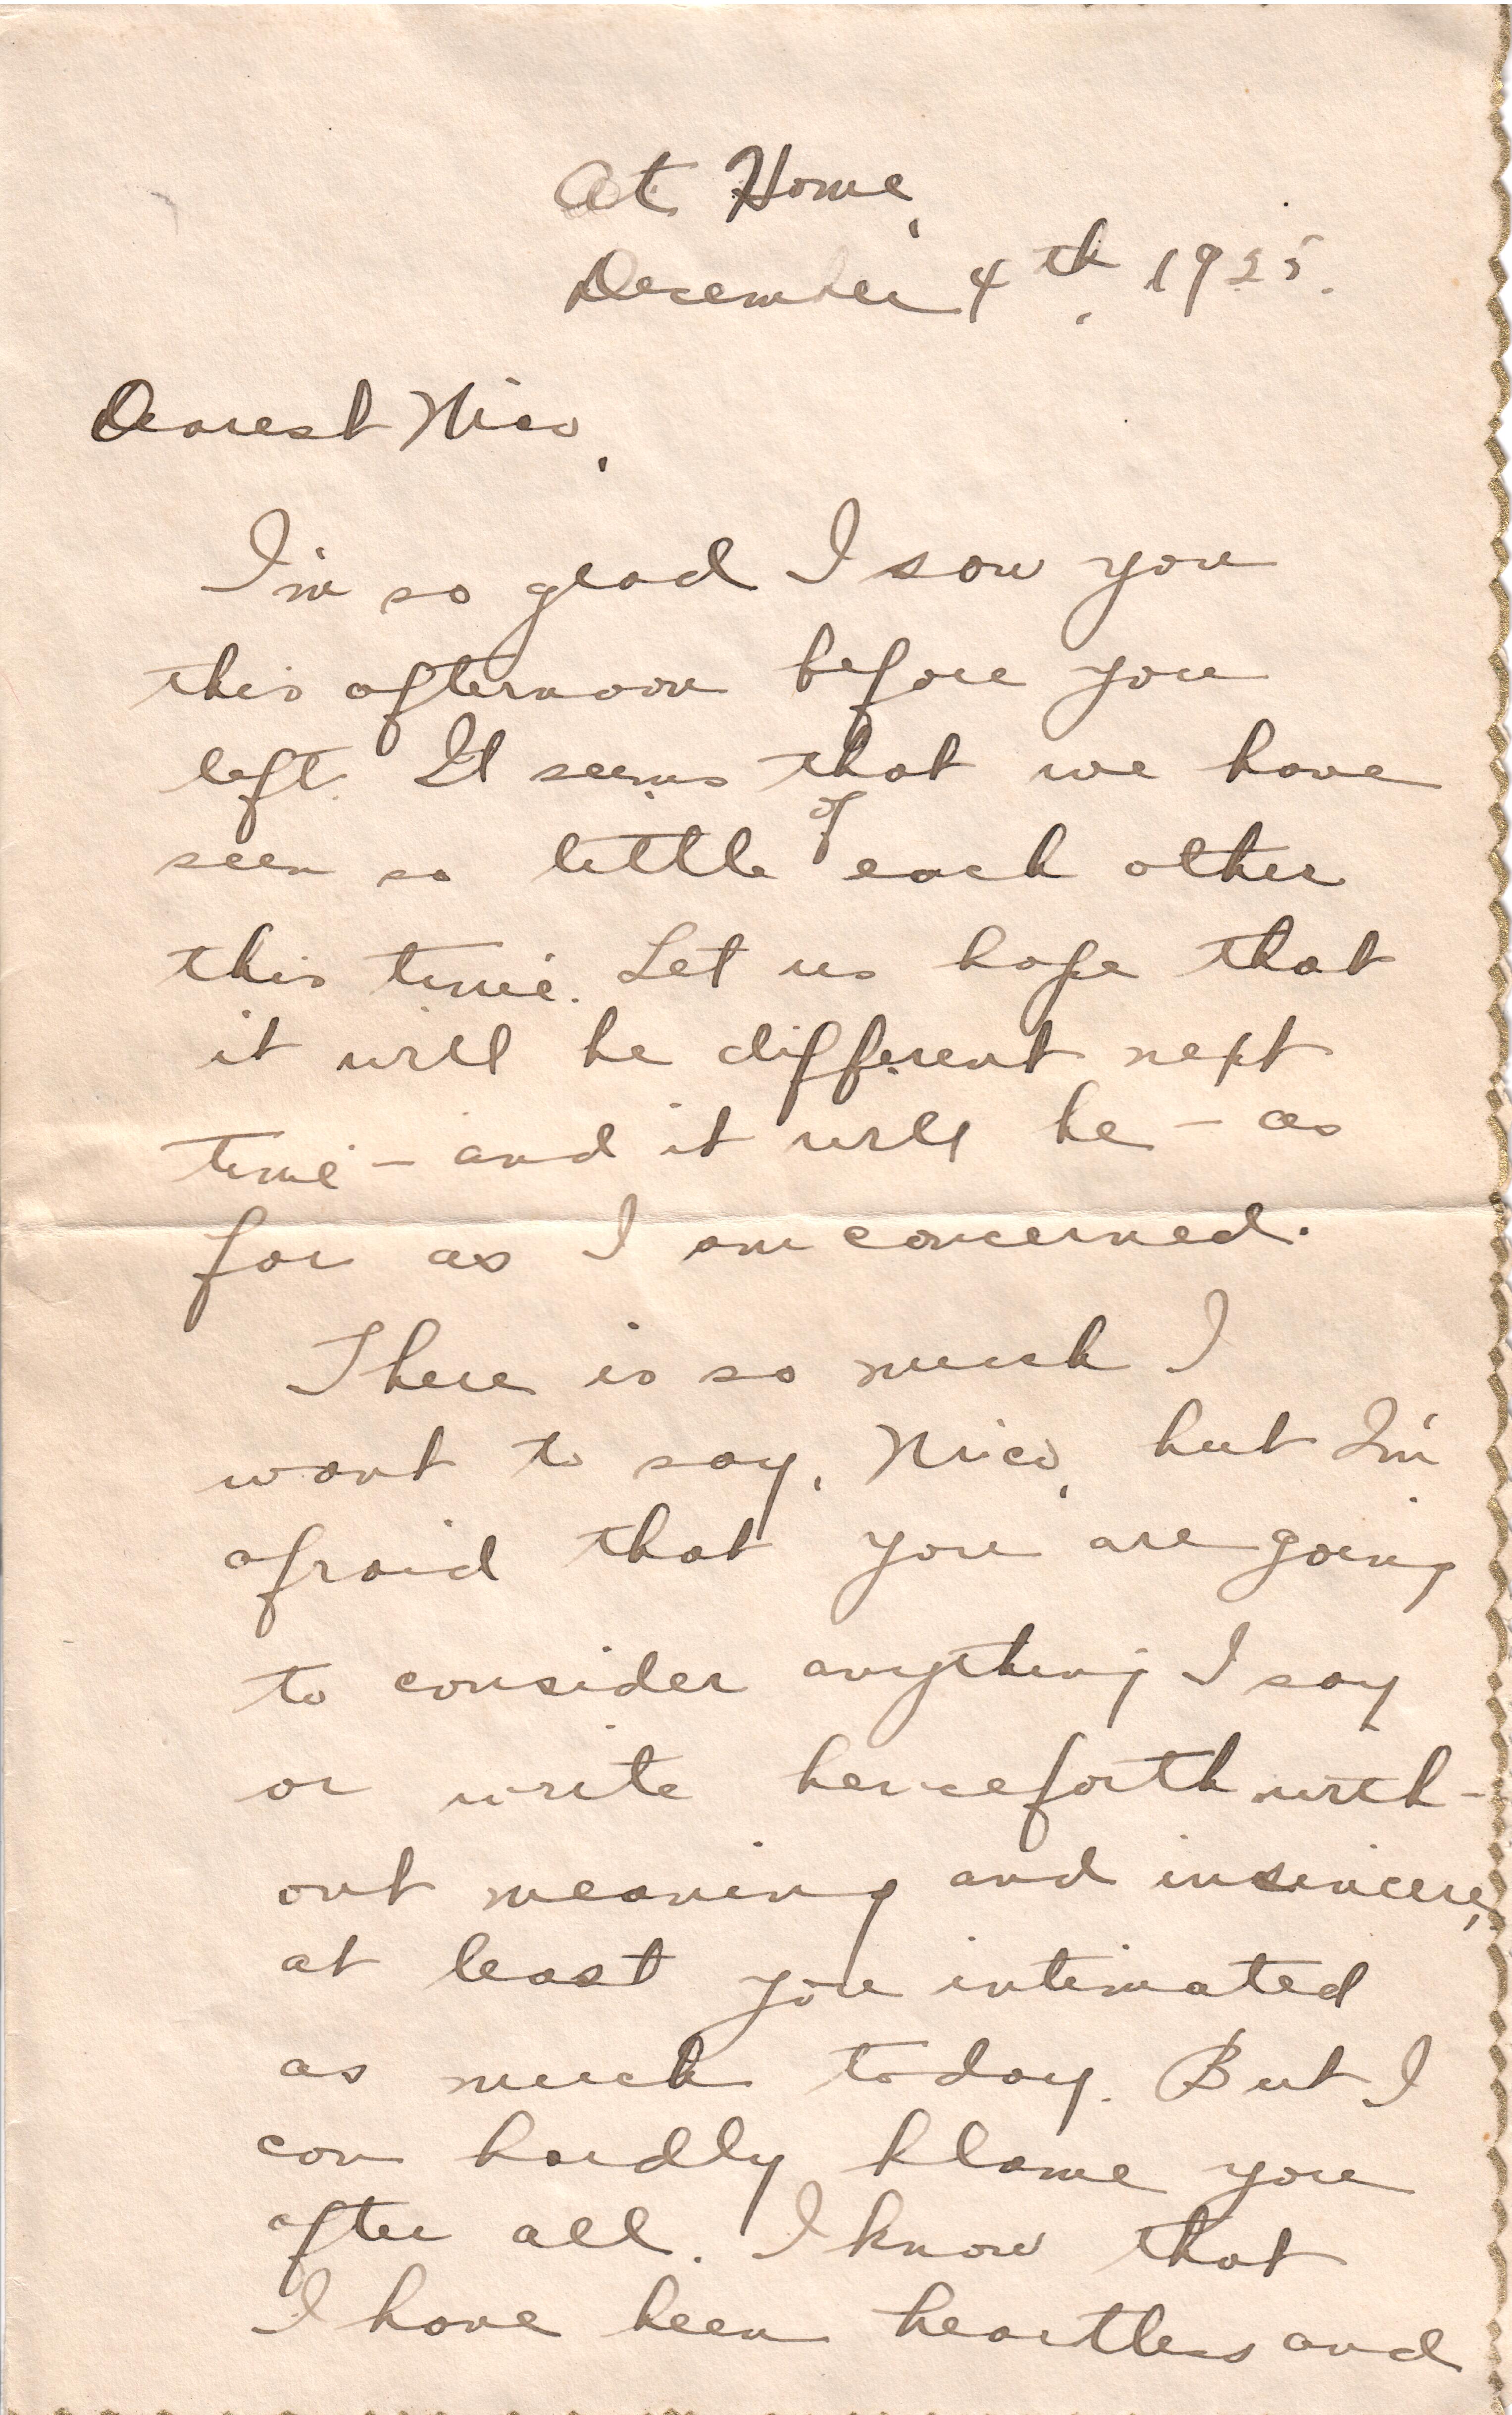 At Home,
December 4th, 1925.
Dearest Nico,
I'm so glad I saw you
this afternoon before you
left. It seems that we have
of
seen so little each other
this time. Let us hope that
it will be different next
time - and it will be - as
far as I am concerned.
There is so much I
want to say, Nico, but I'm
afraid that you are going
to consider anything I say
or write henceforth with-
out meaning and insincere,
at least you intimated
as much today. But I
can hardly blame you
after all. I know that
I have been heartless and